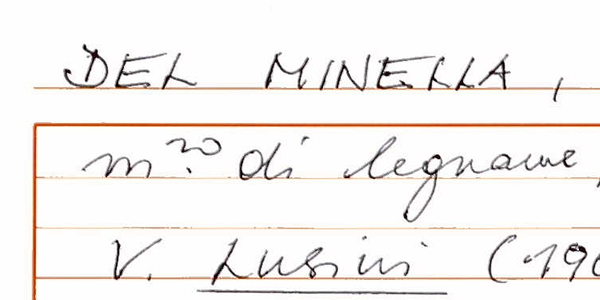 DEL MINELLA,
m.ro di legname,
V. Lusini (196